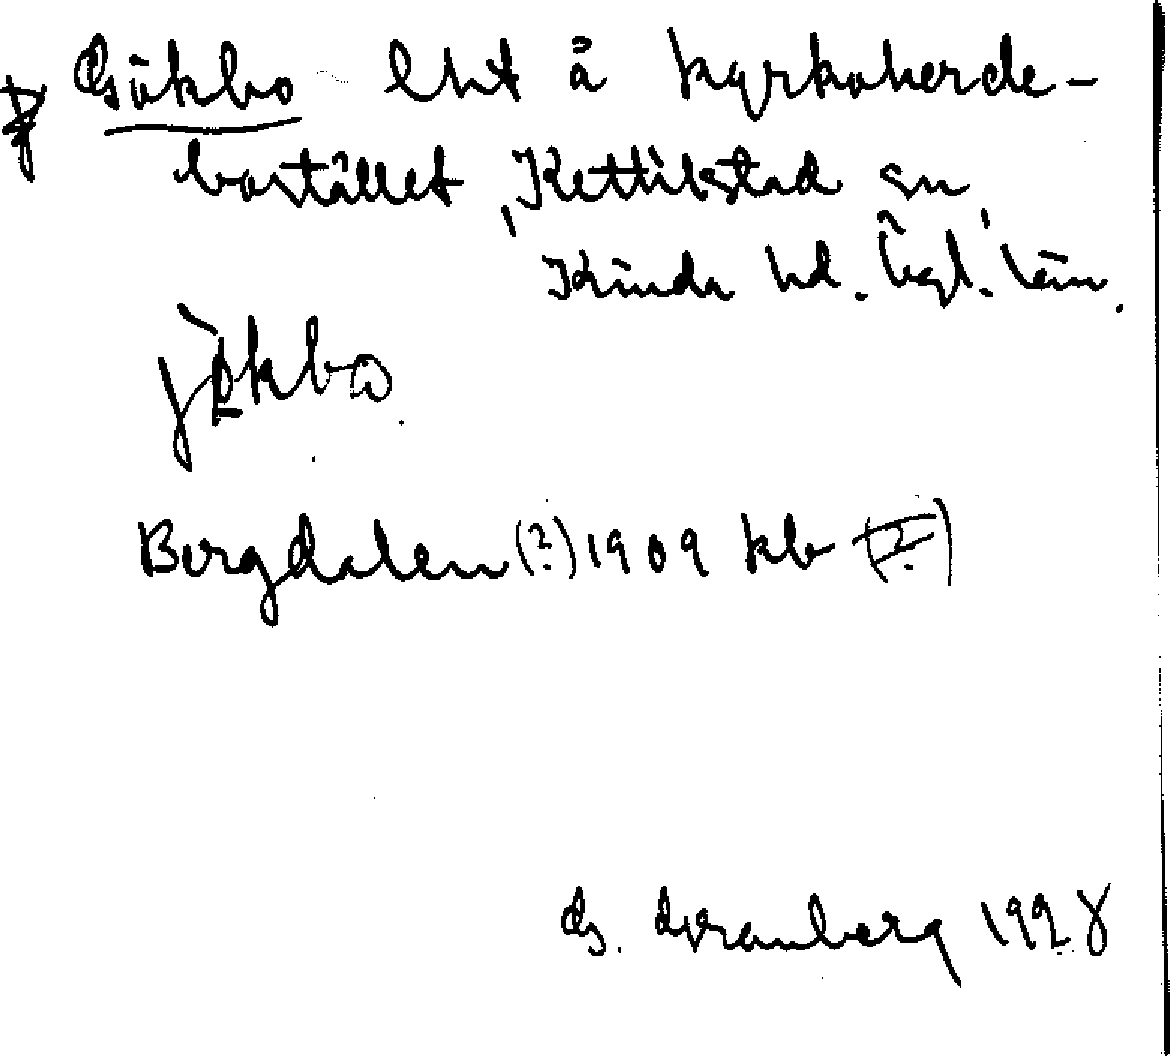 Gökbo lht å kyrkoherde-
bostället, Kettilstad sn
Kinda hd. Ögl. län.
jökbo.
Bergdalen (?) 1909 kb (?)
G. Franberg 1928